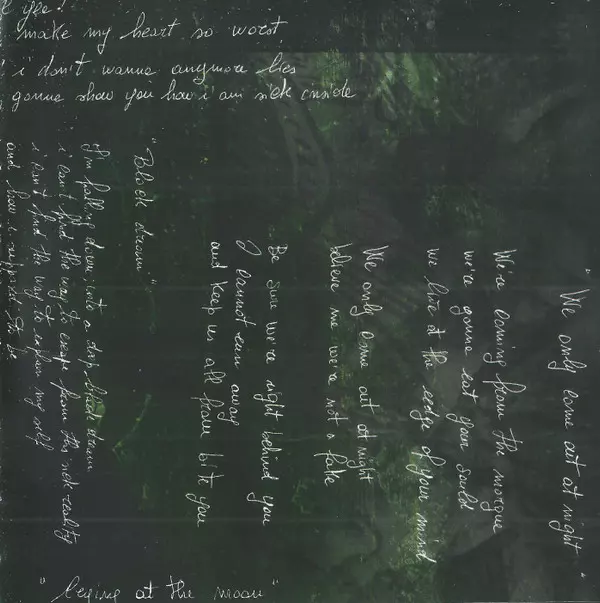 make my heart so worst
i don't wanna anymore lies
gonna show you how i am sick inside
"We only come out at night"
We're coming from the morgue
we're gonna eat your souls
we live at the edge of your mind
We only come out at night
believe me we're not a fake
Be sure we're right behind you
I cannot run away
and keep us all from bite you
"Black dream"
I'm falling down into a deep black dream
i can't find the way to escape from this sick reality
i can't find the way to explain my self
and how i suppose to be
"Crying at the moon"